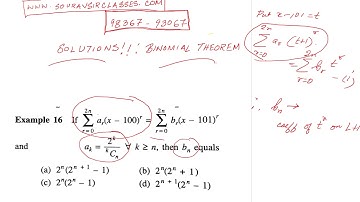 WWW.SOURAVSIRCLASSES.COM
98367-93067
SOLUTIONS!!! BINOMIAL THEOREM
Put x-101=t
2n
∑ aᵣ (t+1)ʳ
r=0
2n
= ∑ bᵣ tʳ — (1)
r=0
Example 16 If ∑_{r=0}^{2n} aᵣ(x − 100)ʳ = ∑_{r=0}^{2n} bᵣ(x − 101)ʳ
and aₖ = 2ᵏ / ᵏCₙ ∀ k ≥ n, then bₙ equals
(a) 2ⁿ(2ⁿ⁺¹ − 1) (b) 2ⁿ(2ⁿ + 1)
(c) 2ⁿ(2ⁿ − 1) (d) 2ⁿ⁺¹(2ⁿ − 1)
∴ bₙ →
coeff of tⁿ on LH